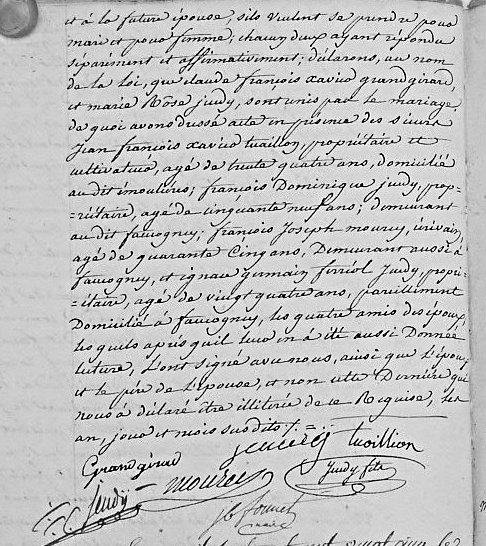 et à la future épouse, s'ils veulent se prendre pour
mari et pour femme; chacun d'eux ayant répondu
séparément et affirmativement; déclarons, au nom
de la loi, que claude françois xavier grandgirard,
et marie Rose jeudy, sont unis par le mariage,
de quoi avons dressé acte en présence des sieurs
Jean françois xavier tvaillon, propriétaire et
cultivateur, agé de trente quatre ans, domicilié
au dit émoulières; françois Dominique jeudy, prop=
=riétaire, agé de cinquante neuf ans; demeurant
au dit faucogney; françois Joseph mourey, écrivain,
agé de quarante Cinq ans, Demeurant aussi à
faucogney, et ignace germain ferréol Jeudy, propri=
=étaire, agé de vingt quatre ans, pareillement
Domicilié à faucogney, les quatre amis des époux,
les quels après qu'il leur en à été aussi Donnée
lecture, L'ont signé avec nous, ainsi que L'époux
et le père de L'épouse, et non cette Dernière qui
nous à déclaré être illitérée de ce Requise, les
an, jour et mois susdits ./. =
jeudy tvaillion
Grandgirard
mourey Jeudy fils
jeudy
maire